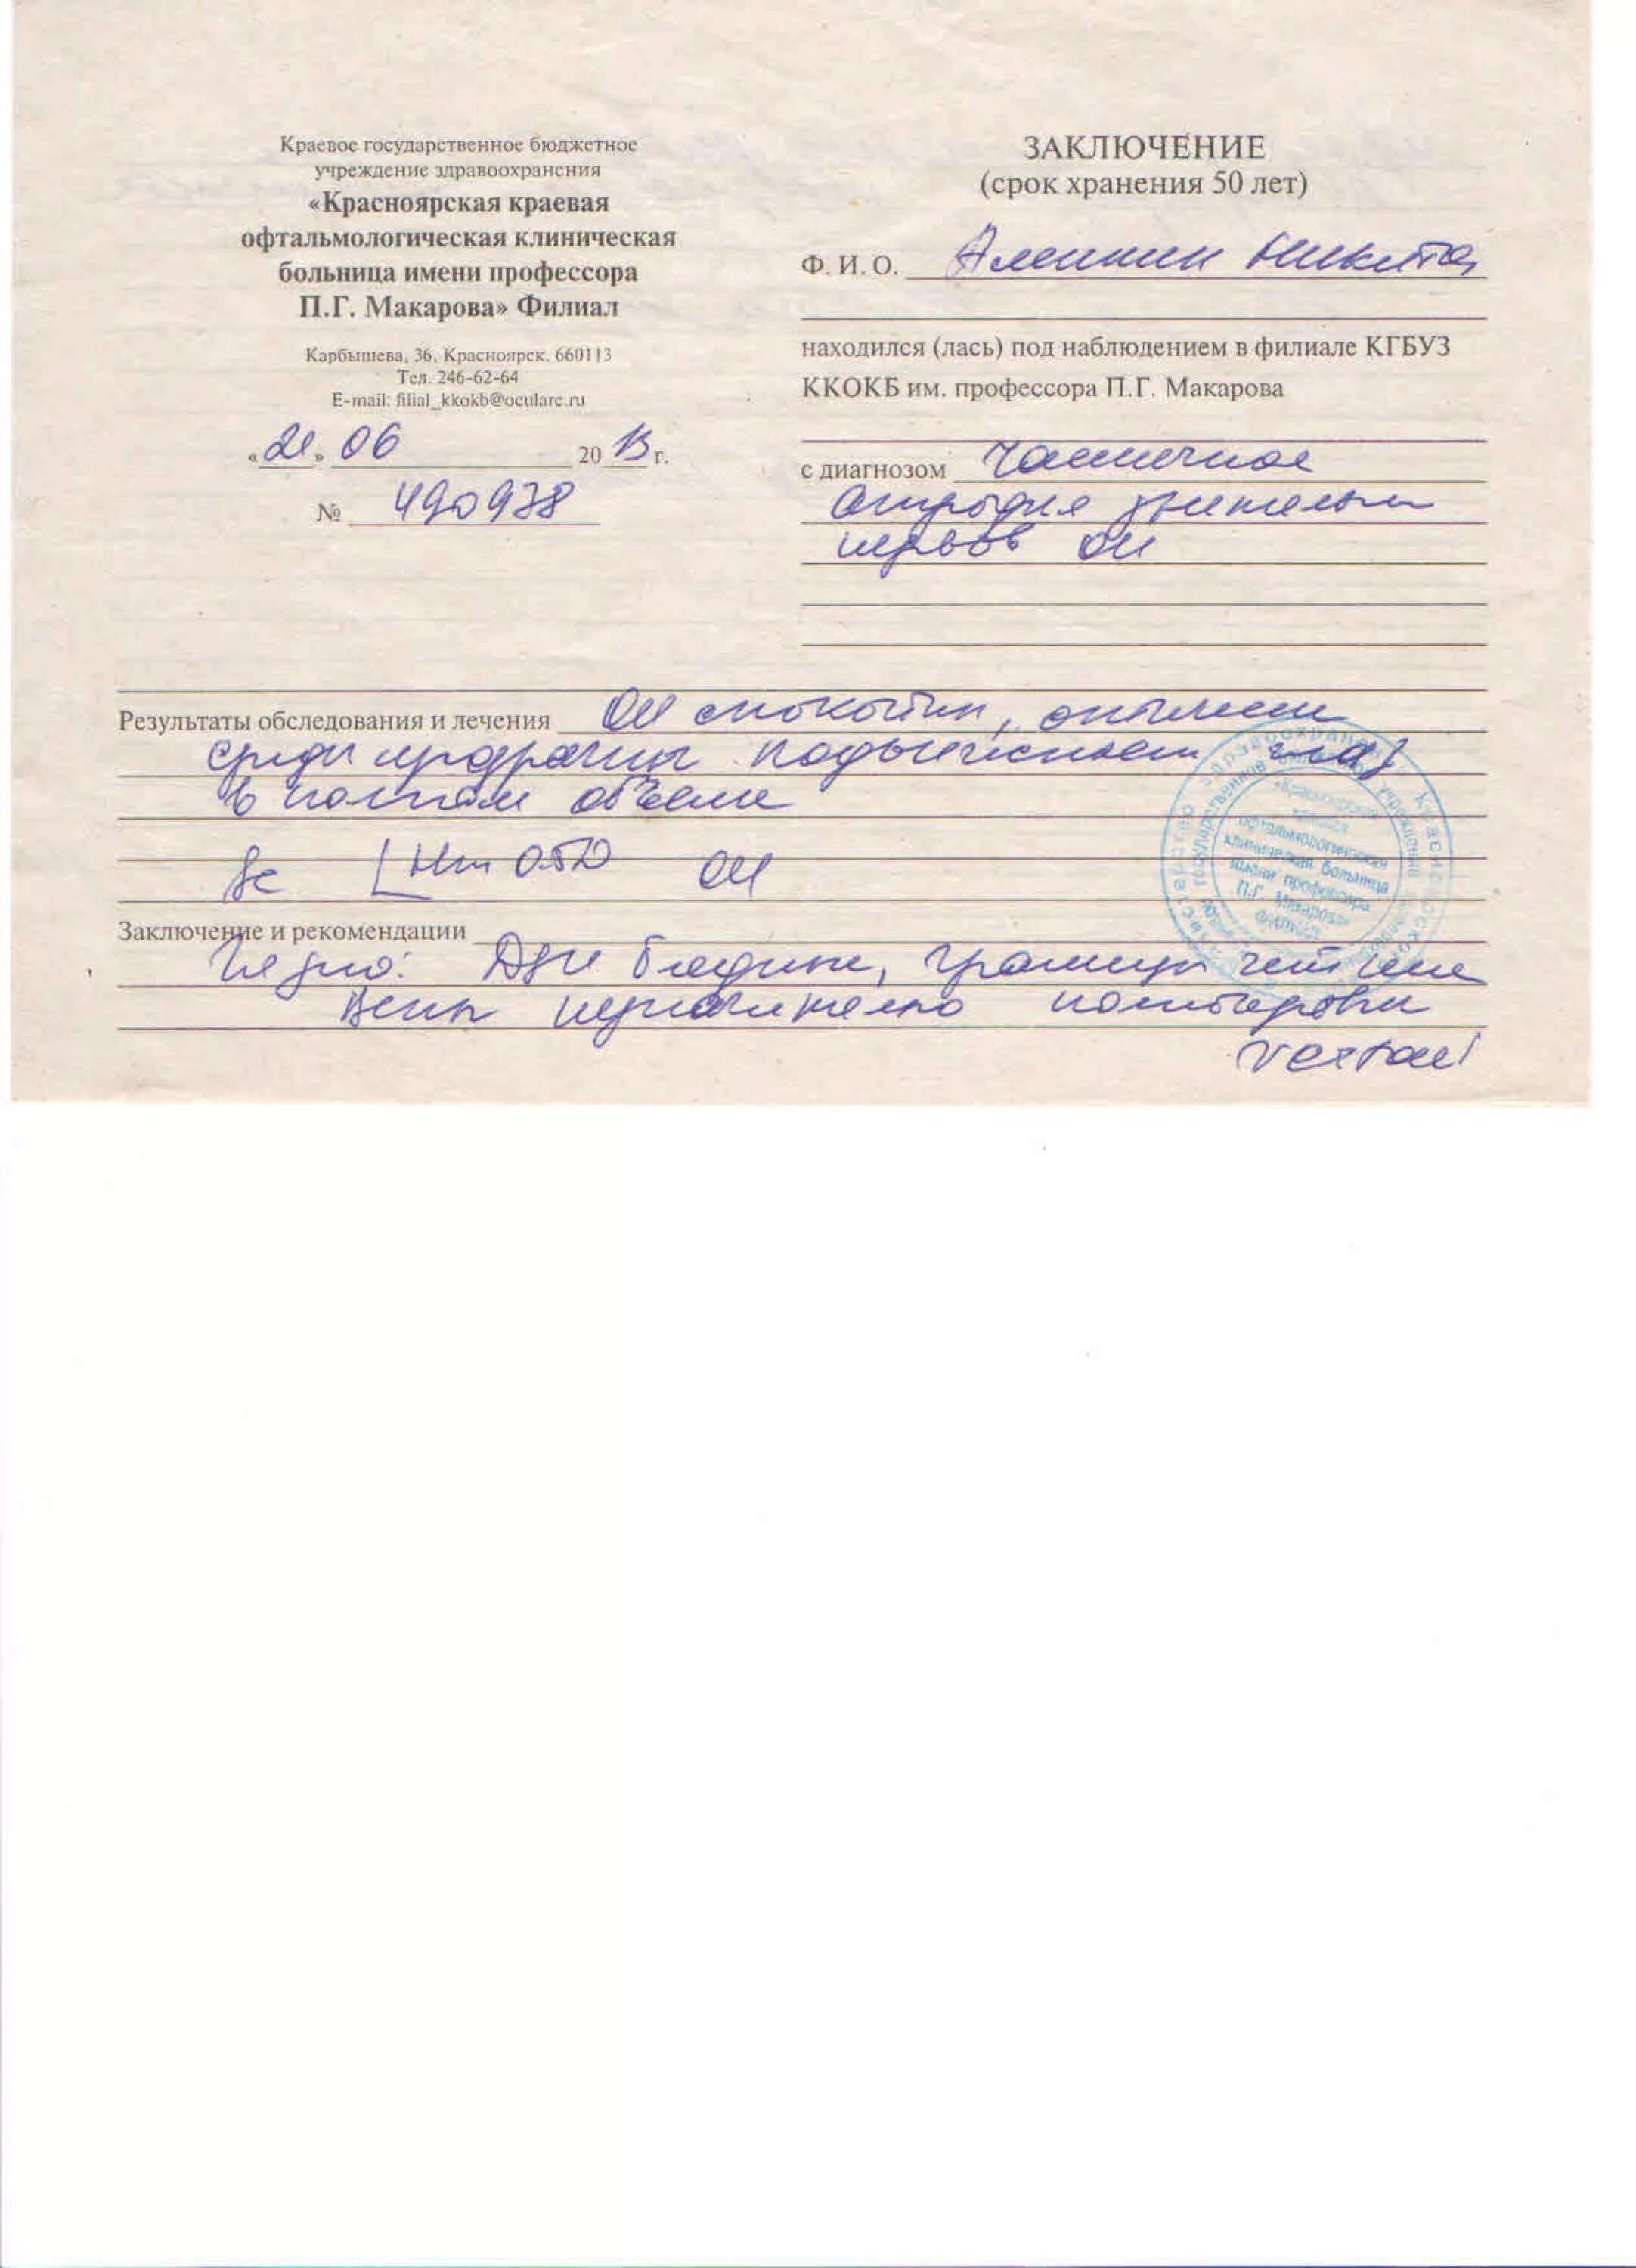 Краевое государственное бюджетное
учреждение здравоохранения
«Красноярская краевая
офтальмологическая клиническая
больница имени профессора
П.Г. Макарова» Филиал
Карбышева, 36, Красноярск, 660113
Тел. 246-62-64
E-mail: filial_kkokb@ocularc.ru
«21» 06 2013 г.
№ 490938
ЗАКЛЮЧЕНИЕ
(срок хранения 50 лет)
Ф. И. О. Никита
находился (лась) под наблюдением в филиале КГБУЗ
ККОКБ им. профессора П.Г. Макарова
с диагнозом Частичная
атрофия зрительн
нервов ОИ
Результаты обследования и лечения ОИ спокойны, оптические
среды прозрачны подвижность глаз
в полном объеме
Sc Hm 0.5D ОИ
Заключение и рекомендации
Гл дно: ДЗН бледные, границы четкие
Вены незначительно полнокровны
офтальмологическая
клиническая больница
имени профессора
П.Г. Макарова»
Филиал